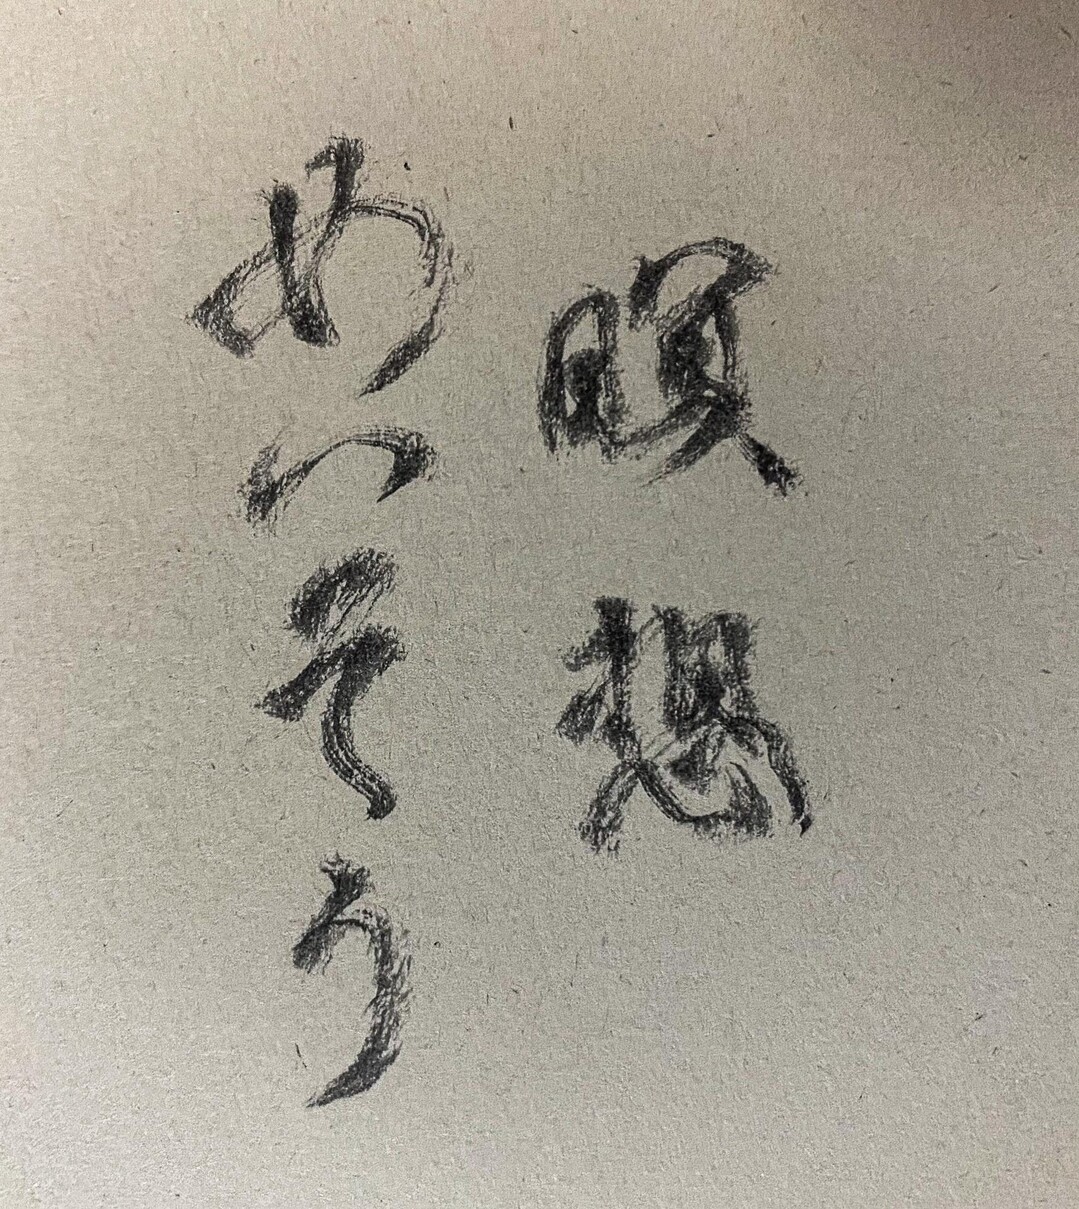 瞑想
めいそう